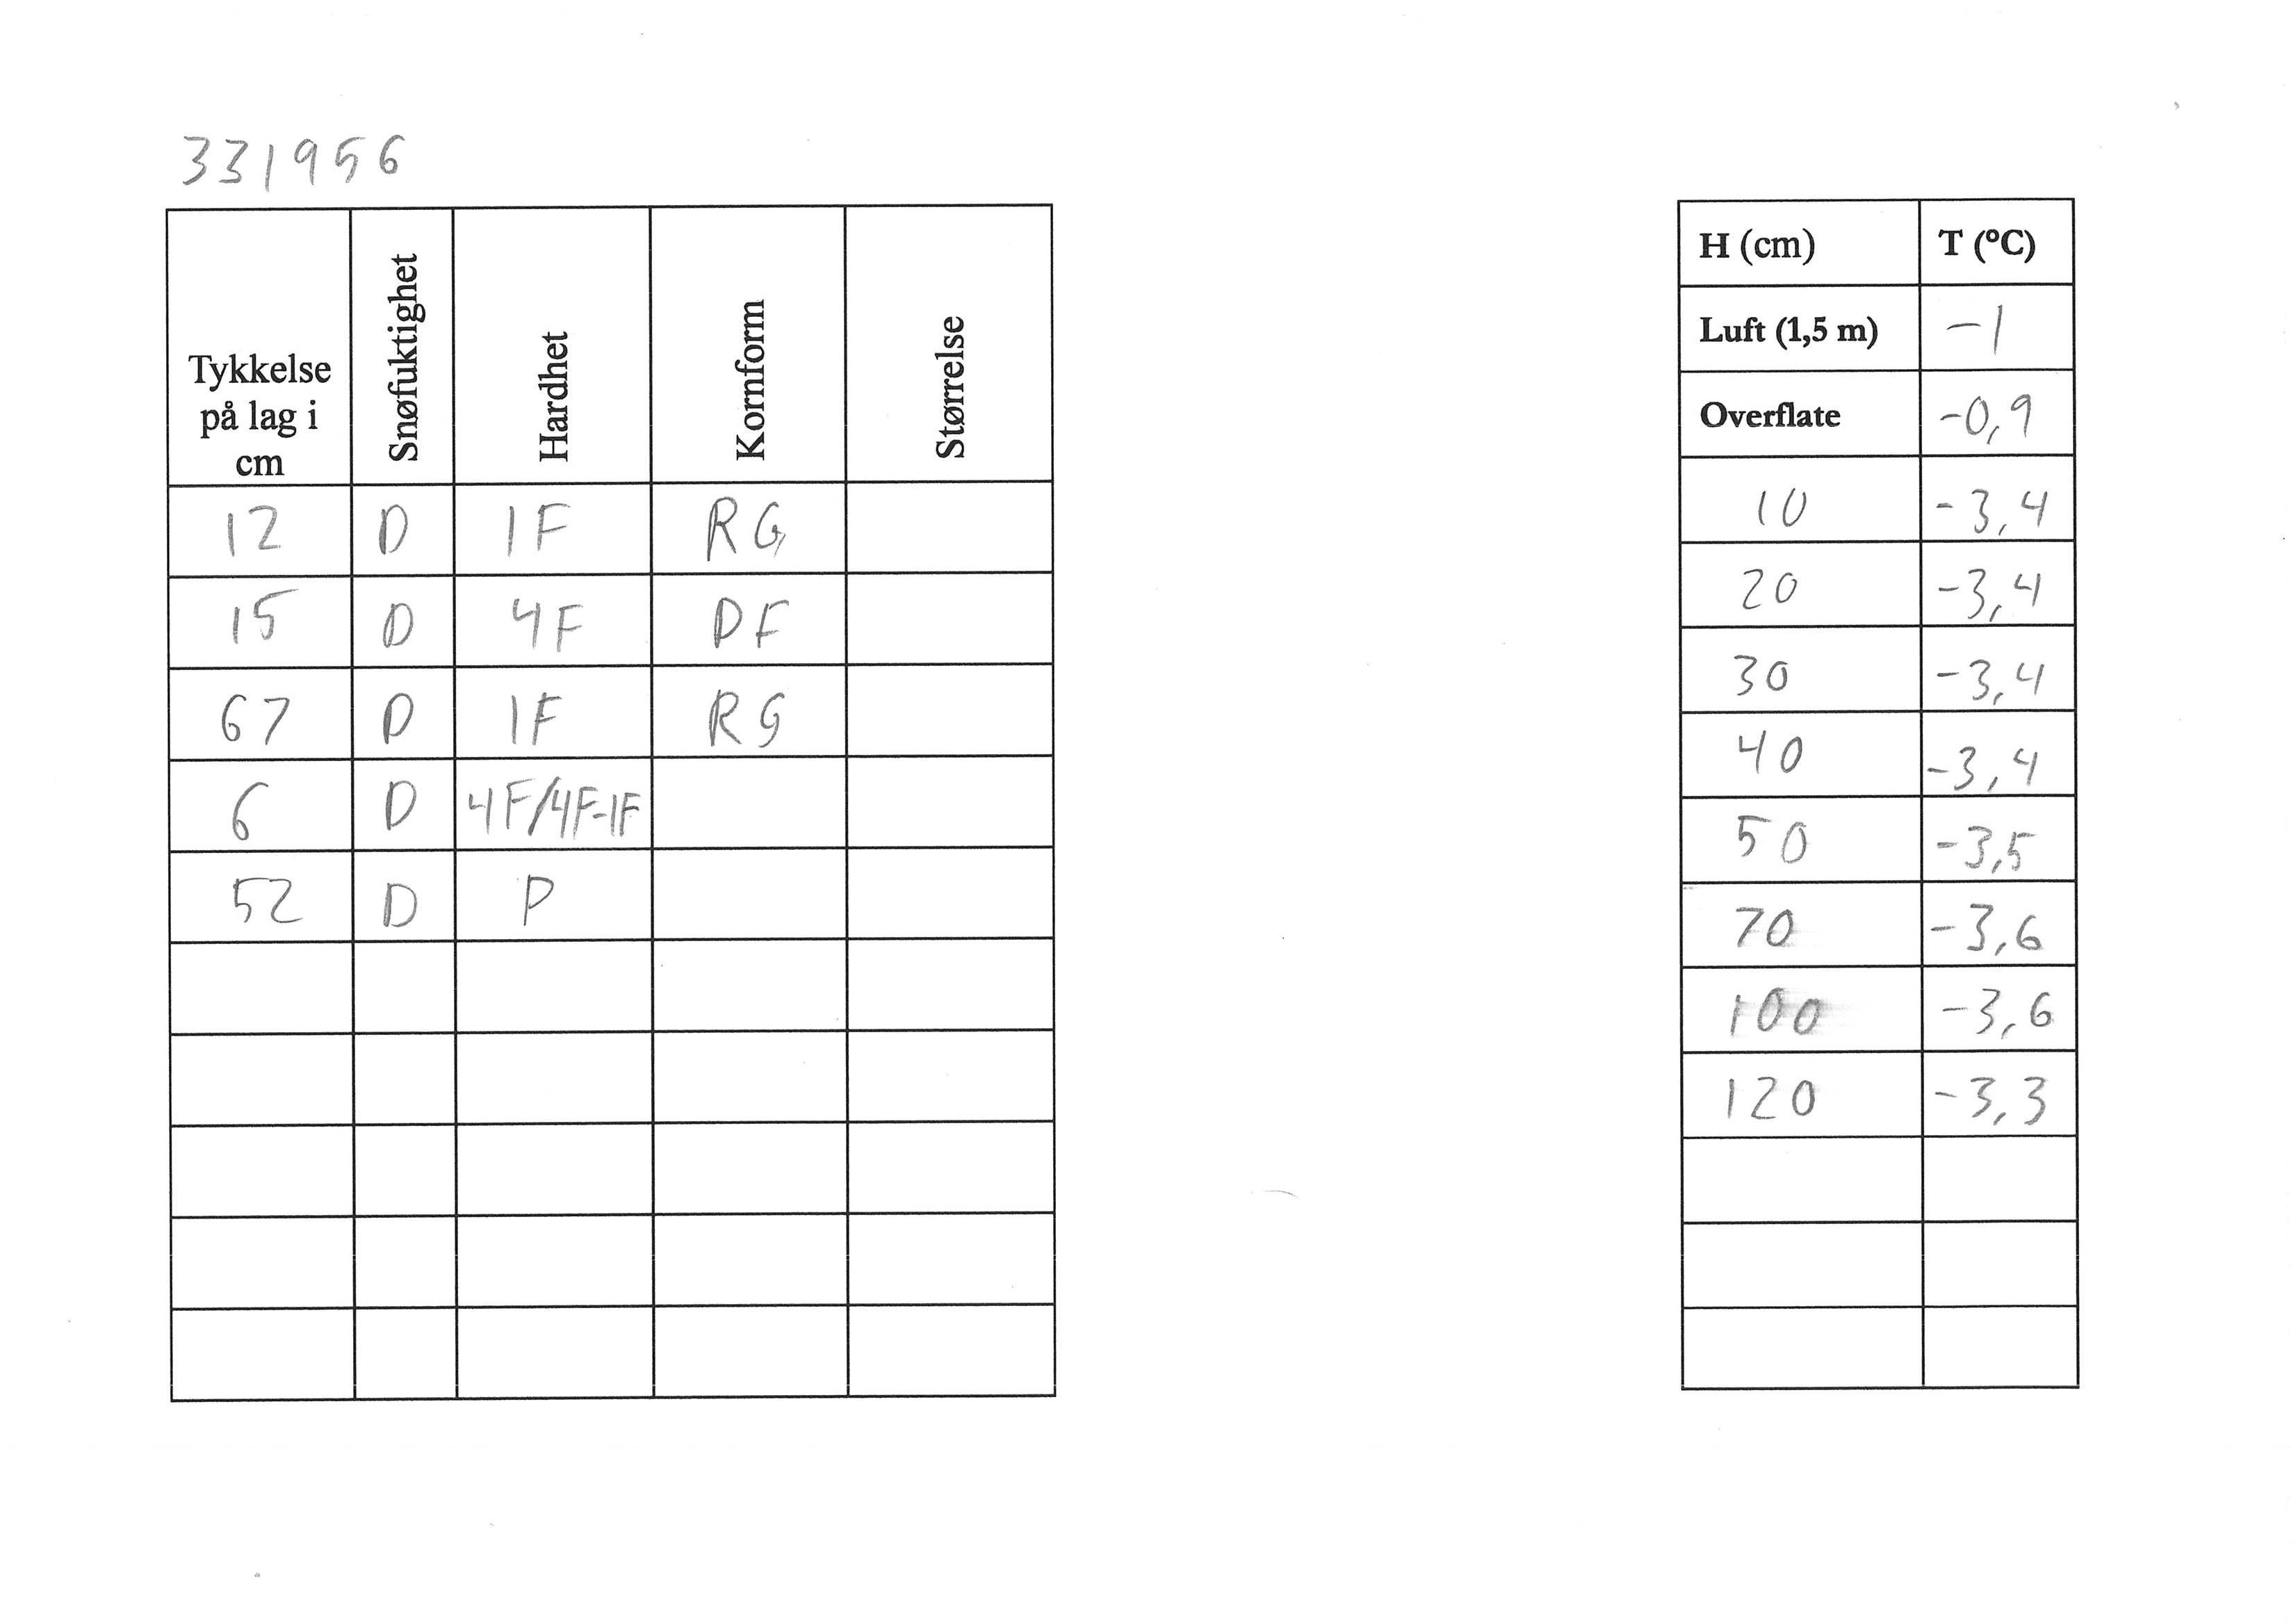 331956
Tykkelse på lag i cm Snøfuktighet Hardhet Kornform Størrelse
12 D 1F RG
15 D 4F DF
67 D 1F RG
6 D 4F/4F-1F
52 D P
H (cm) T (°C)
Luft (1,5 m) -1
Overflate -0,9
10 -3,4
20 -3,4
30 -3,4
40 -3,4
50 -3,5
70 -3,6
100 -3,6
120 -3,3